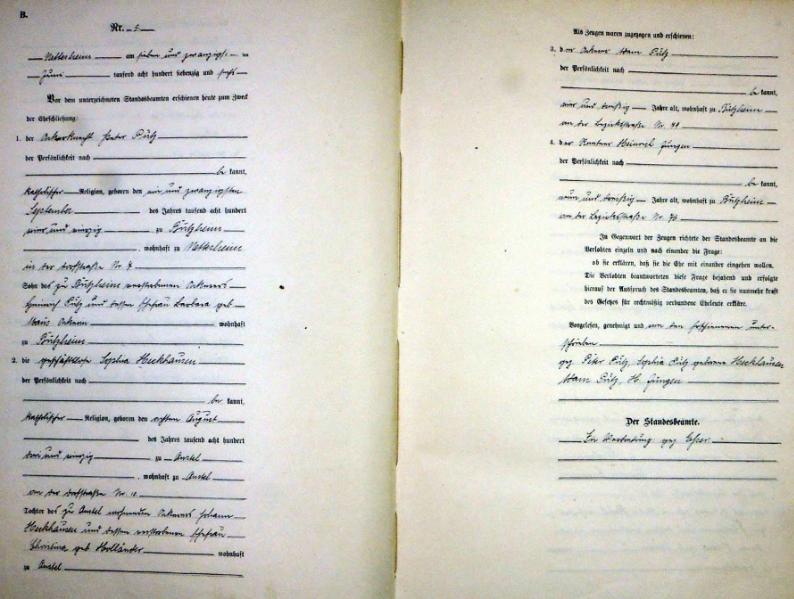 B.
Nr. 5
Nettesheim am sieben und zwanzigsten
Juni tausend acht hundert siebenzig und sechs
Vor dem unterzeichneten Standesbeamten erschienen heute zum Zweck
der Eheschließung:
1. der Ackerknecht Peter Pütz
der Persönlichkeit nach
be kannt,
katholischer Religion, geboren den ein und zwanzigsten
September des Jahres tausend acht hundert
vier und vierzig zu Bützheim
, wohnhaft zu Nettesheim
in der Dorfstraße Nr.
Sohn des zu Bützheim verstorbenen Ackerers
Heinrich Pütz und dessen Ehefrau Barbara geb
wohnhaft
zu Bützheim
2. die geschäftslose Sophia Heckhausen
der Persönlichkeit nach
be kannt,
katholischer Religion, geboren den achten August
des Jahres tausend acht hundert
drei und vierzig zu Anstel
, wohnhaft zu Anstel
an der Dorfstraße Nr. 10
Tochter des zu Anstel wohnenden Ackerers Johann
Heckhausen und dessen verstorbenen Ehefrau
Christina geb Holländer wohnhaft
zu Anstel
Als Zeugen waren zugezogen und erschienen:
3. der Ackerer Adam Pütz
der Persönlichkeit nach
be kannt,
vier und dreißig Jahre alt, wohnhaft zu Bützheim
an der Bezirksstraße Nr.
4. der Rentner Heinrich Jüngen
der Persönlichkeit nach
be kannt,
neun und dreißig Jahre alt, wohnhaft zu Bützheim
an der Bezirksstraße Nr. 76
In Gegenwart der Zeugen richtete der Standesbeamte an die
Verlobten einzeln und nach einander die Frage:
ob sie erklären, daß sie die Ehe mit einander eingehen wollen.
Die Verlobten beantworteten diese Frage bejahend und erfolgte
hierauf der Ausspruch des Standesbeamten, daß er sie nunmehr kraft
des Gesetzes für rechtmäßig verbundene Eheleute erkläre.
Vorgelesen, genehmigt und von den Erschienenen unter-
schrieben
gez Peter Pütz, Sophia Pütz geborene Heckhausen
Adam Pütz, H. Jüngen
Der Standesbeamte.
In Vertretung gez Esser